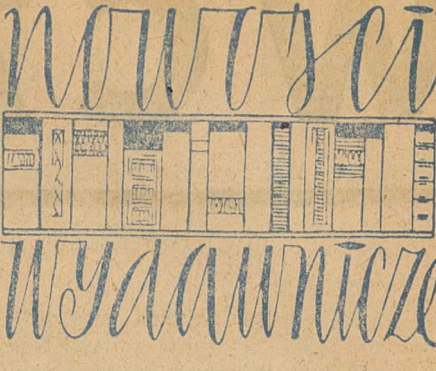 nowości
wydawnicze